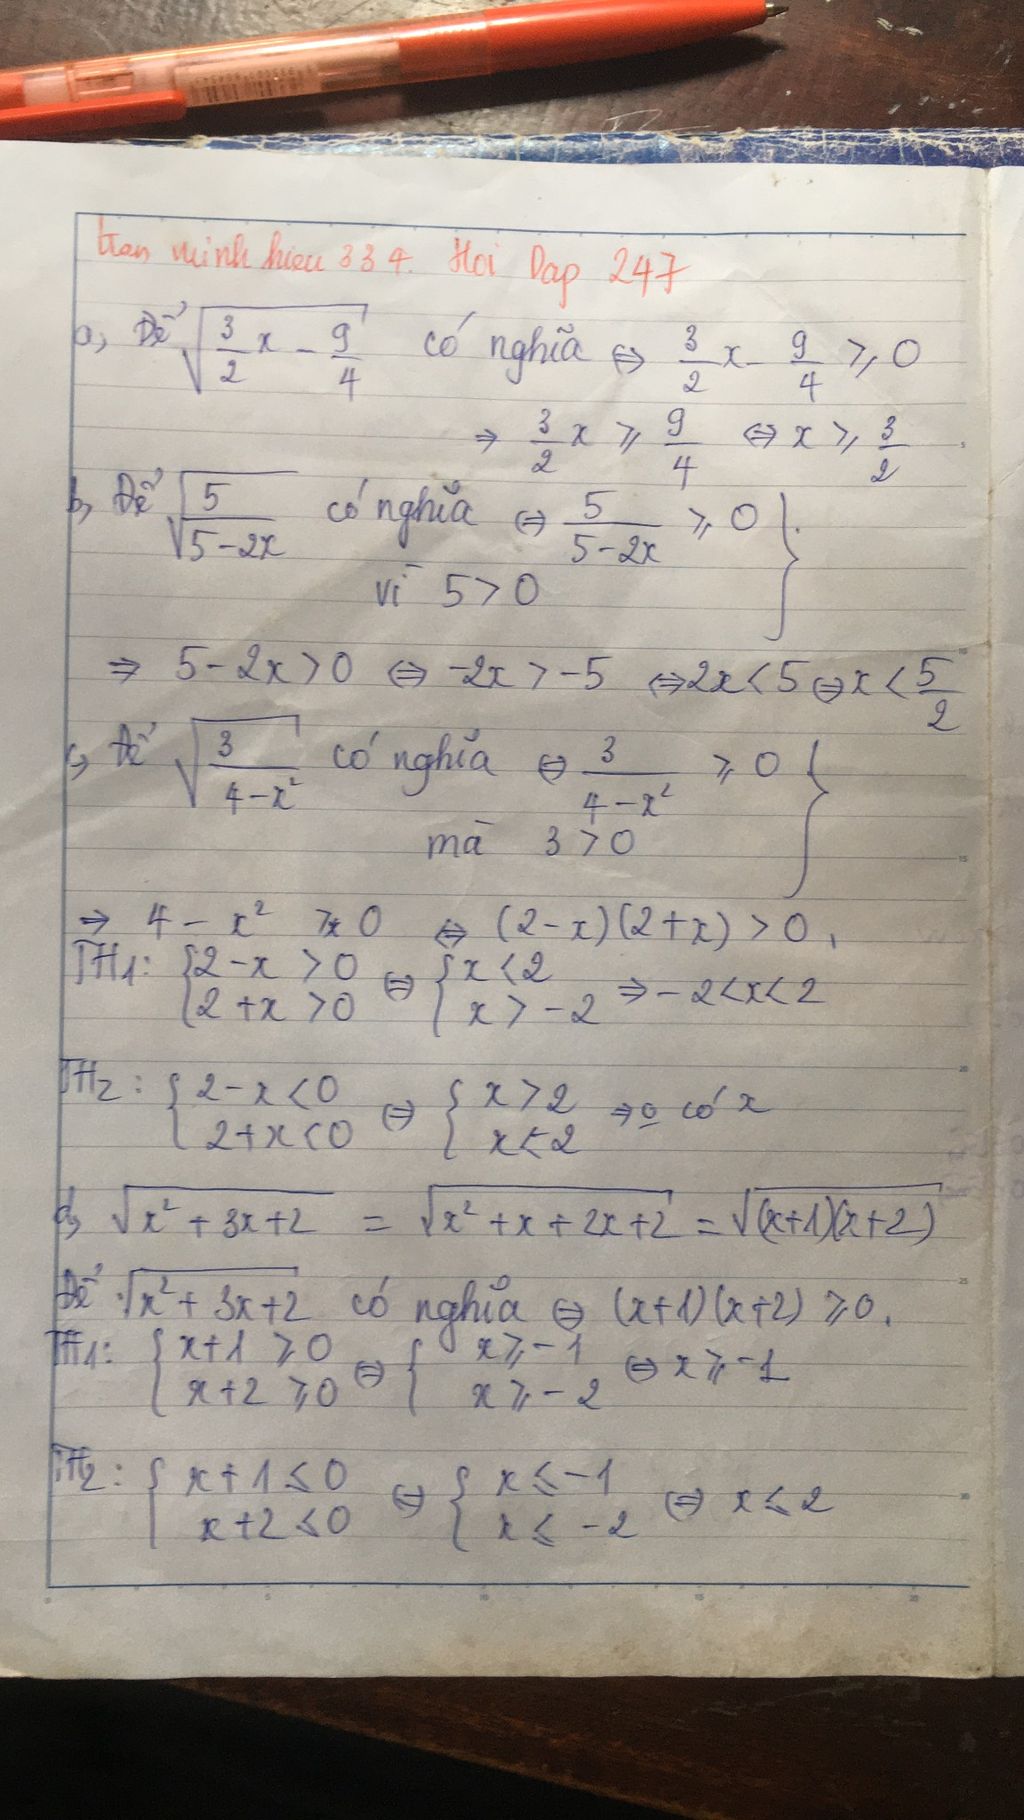 tran minh hieu 334. Hoi Dap 247
a, Để √(3/2 x - 9/4) có nghĩa ⇔ 3/2 x - 9/4 ⩾ 0
⇒ 3/2 x ⩾ 9/4 ⇔ x ⩾ 3/2
b, Để √(5/(5-2x)) có nghĩa ⇔ 5/(5-2x) ⩾ 0 }
vì 5 > 0
⇒ 5-2x > 0 ⇔ -2x > -5 ⇔ 2x < 5 ⇔ x < 5/2
c, Để √(3/(4-x²)) có nghĩa ⇔ 3/(4-x²) ⩾ 0 }
mà 3 > 0
⇒ 4 - x² > 0 ⇔ (2-x)(2+x) > 0.
TH1: { 2-x > 0 ⇔ { x < 2
2+x > 0 x > -2 ⇒ -2 < x < 2
TH2: { 2-x < 0 ⇔ { x > 2 ⇒ o có x
2+x < 0 x < 2
d, √(x² + 3x+2) = √(x² + x + 2x+2) = √((x+1)(x+2))
Để √(x² + 3x+2) có nghĩa ⇔ (x+1)(x+2) ⩾ 0.
TH1: { x+1 ⩾ 0 ⇔ { x ⩾ -1 ⇔ x ⩾ -1
x+2 ⩾ 0 x ⩾ -2
TH2: { x+1 ⩽ 0 ⇔ { x ⩽ -1 ⇔ x ⩽ 2
x+2 ⩽ 0 x ⩽ -2